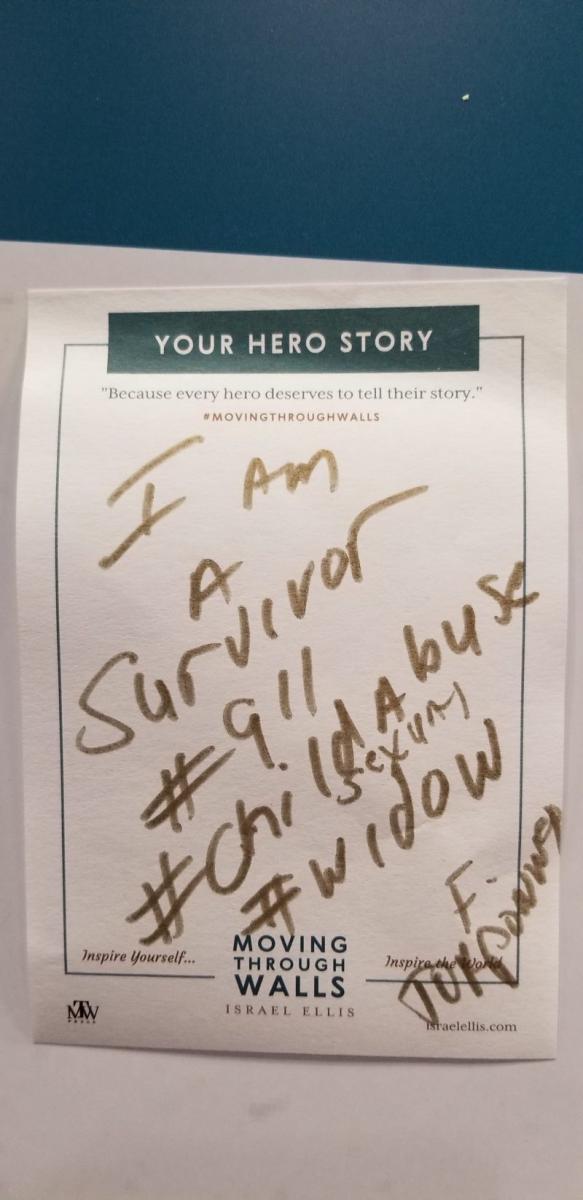 YOUR HERO STORY
"Because every hero deserves to tell their story."
#MOVINGTHROUGHWALLS
I Am
A
Survivor
#911
#Child Abuse
sexual
#widow
F.
Inspire Yourself...
MOVING
THROUGH
WALLS
Inspire the World
ISRAEL ELLIS
MTW
israelellis.com